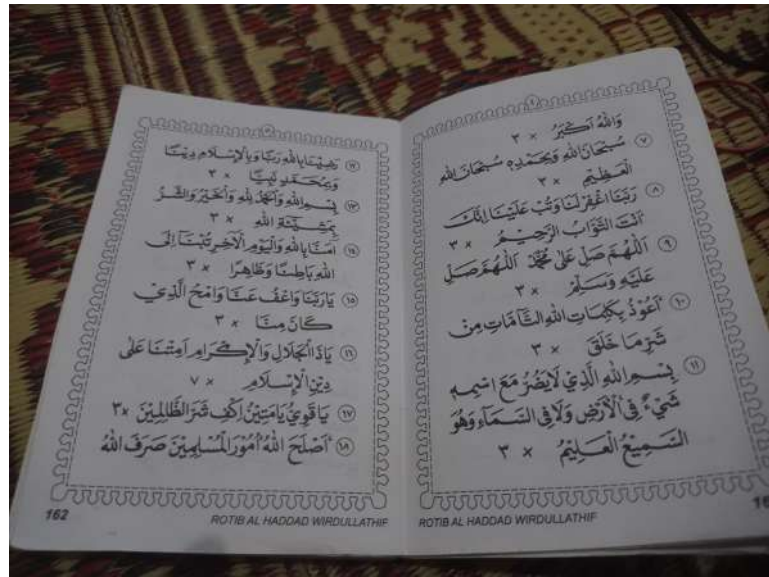 وَاللهُ اَكْبَرُ × ٣
٧ سُبْحَانَ اللهِ وَبِحَمْدِهِ سُبْحَانَ اللهِ
الْعَظِيْمِ × ٣
٨ رَبَّنَا اغْفِرْ لَنَا وَتُبْ عَلَيْنَا اِنَّكَ
اَنْتَ التَّوَّابُ الرَّحِيْمُ × ٣
٩ اَللّٰهُمَّ صَلِّ عَلَى مُحَمَّدٍ اَللّٰهُمَّ صَلِّ
عَلَيْهِ وَسَلِّمْ × ٣
١٠ اَعُوْذُ بِكَلِمَاتِ اللهِ التَّامَّاتِ مِنْ
شَرِّ مَا خَلَقَ × ٣
١١ بِسْمِ اللهِ الَّذِيْ لَايَضُرُّ مَعَ اسْمِهِ
شَيْءٌ فِى الْاَرْضِ وَلَا فِى السَّمَاءِ وَهُوَ
السَّمِيْعُ الْعَلِيْمُ × ٣
ROTIB AL HADDAD WIRDULLATHIF
١٢ رَضِيْنَا بِاللهِ رَبًّا وَبِالْاِسْلَامِ دِيْنًا
وَبِمُحَمَّدٍ نَبِيًّا × ٣
١٣ بِسْمِ اللهِ وَالْحَمْدُ لِلّٰهِ وَالْخَيْرُ وَالشَّرُّ
بِمَشِيْئَةِ اللهِ × ٣
١٤ اٰمَنَّا بِاللهِ وَالْيَوْمِ الْاٰخِرِ تُبْنَا اِلَى
اللهِ بَاطِنًا وَظَاهِرًا × ٣
١٥ يَارَبَّنَا وَاعْفُ عَنَّا وَامْحُ الَّذِيْ
كَانَ مِنَّا × ٣
١٦ يَاذَا الْجَلَالِ وَالْاِكْرَامِ اَمِتْنَا عَلَى
دِيْنِ الْاِسْلَامِ × ٧
١٧ يَاقَوِيُّ يَامَتِيْنُ اِكْفِ شَرَّ الظَّالِمِيْنَ ×٣
١٨ اَصْلَحَ اللهُ اُمُوْرَ الْمُسْلِمِيْنَ صَرَفَ اللهُ
162 ROTIB AL HADDAD WIRDULLATHIF